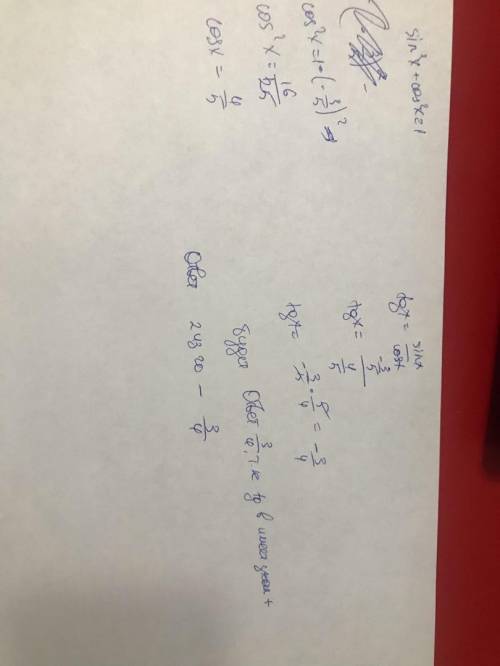 sin²x + cos²x = 1
cos²x = 1 - (-3/5)²
cos²x = 16/25
cosx = 4/5
tgx = sinx/cosx
tgx = (-3/5)/(4/5)
tgx = -3/5 · 5/4 = -3/4
будет Ответ 3/4, т к tg в имеет знак +
Ответ - 3/4